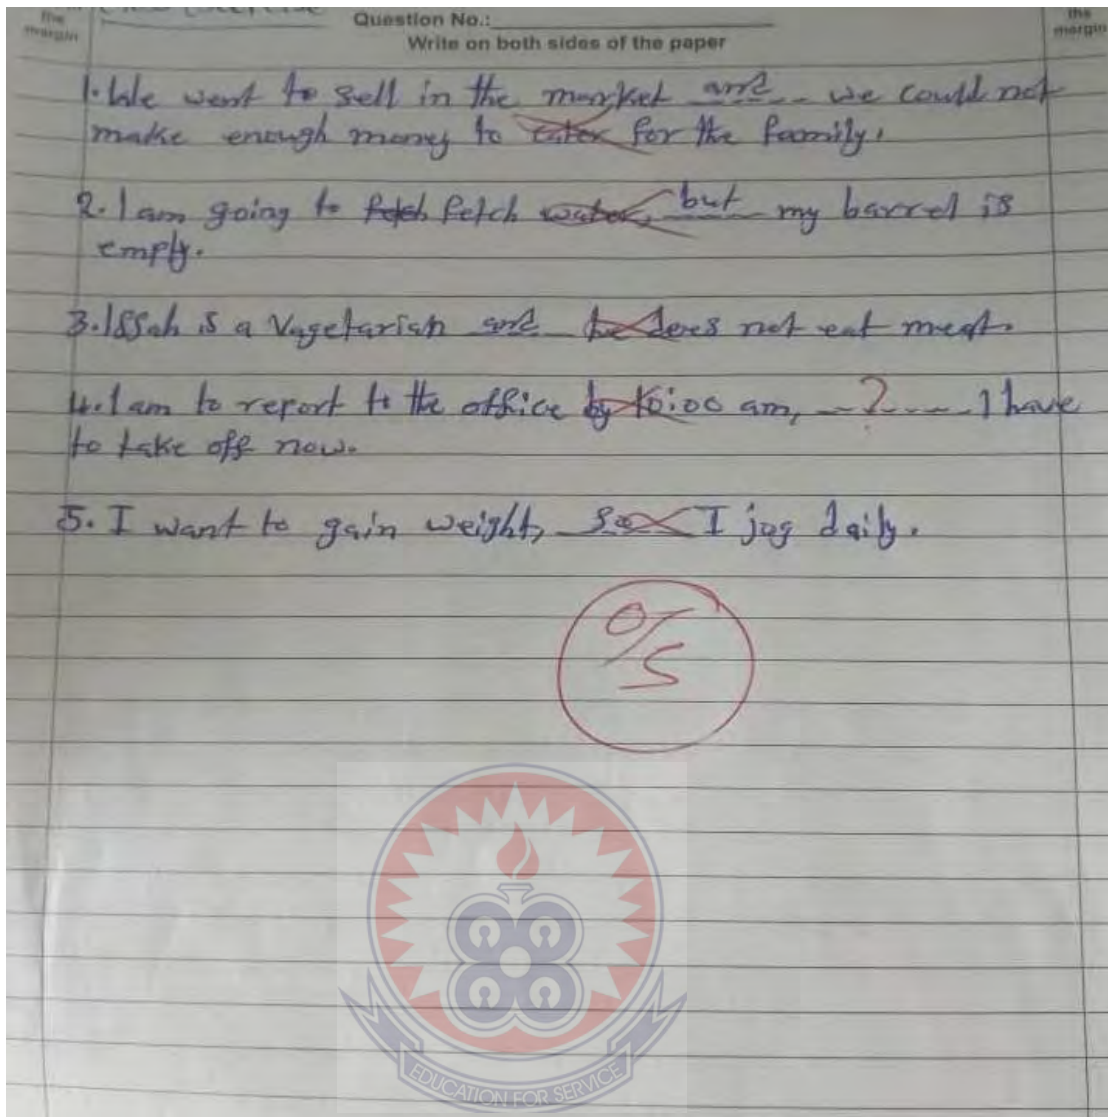 the
margin
Question No.:
Write on both sides of the paper
the
margin
1. We went to sell in the market and we could not
make enough money to cater for the family.
2. I am going to fetch fetch water, but my barrel is
empty.
3. Issah is a Vagetarian and he does not eat meat.
4. I am to report to the office by 10:00 am, ---?--- I have
to take off now.
5. I want to gain weight, so I jog daily.
0/5
EDUCATION FOR SERVICE